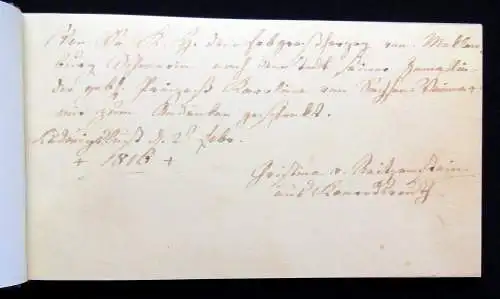 Von Sr. K. H. dem Erbgroßherzog von Meklen-
burg Schwerin nach dem Tode seiner Gemalin
der gebh. Prinzeß Karoline von Sachsen Weimar
mir zum Andenken geschenkt.
Ludwigslust d. 2t Febr.
+ 1816 +
Christine v. Reitzenstein
aus